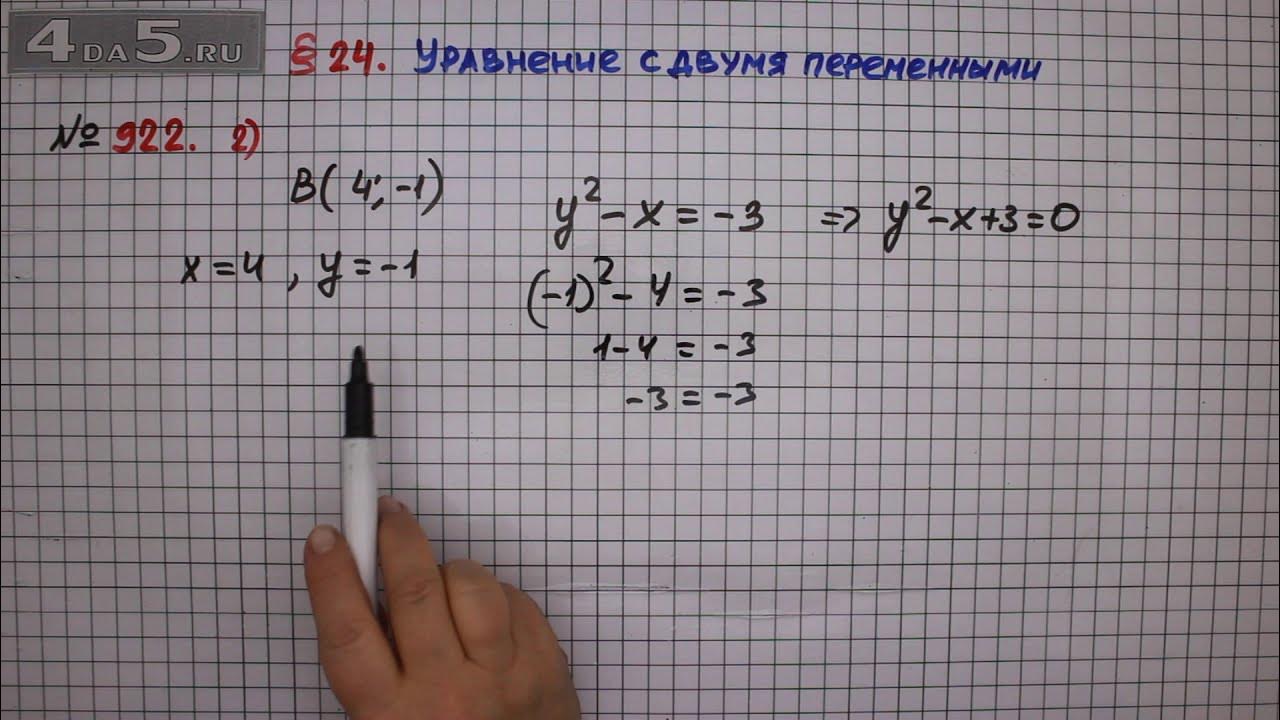 4DA5.RU
§ 24. Уравнение с двумя переменными
№ 922. 2)
B( 4; -1)
x = 4 , y = -1
y² - x = -3 => y² - x + 3 = 0
(-1)² - 4 = -3
1 - 4 = -3
-3 = -3